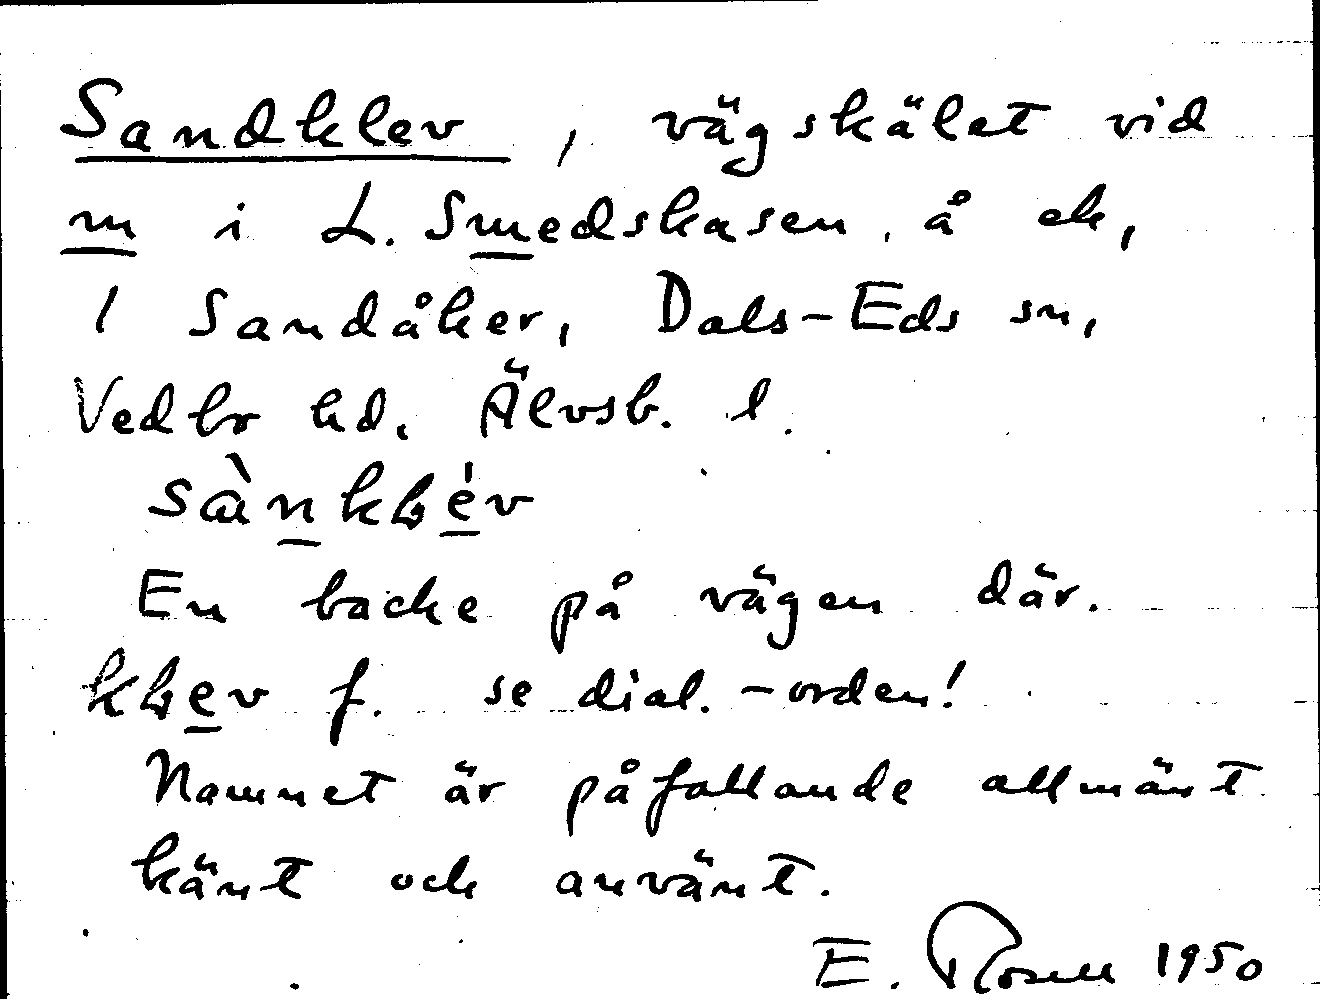 Sandklev, vägskälet vid
m i L. Smedskasen å ek,
1 Sandåker, Dals-Eds sn,
Vedbo hd. Älvsb. l.
En backe på vägen där.
f. se dial.-orden!
Namnet är påfallande allmänt
känt och använt.
E. Rosell 1950